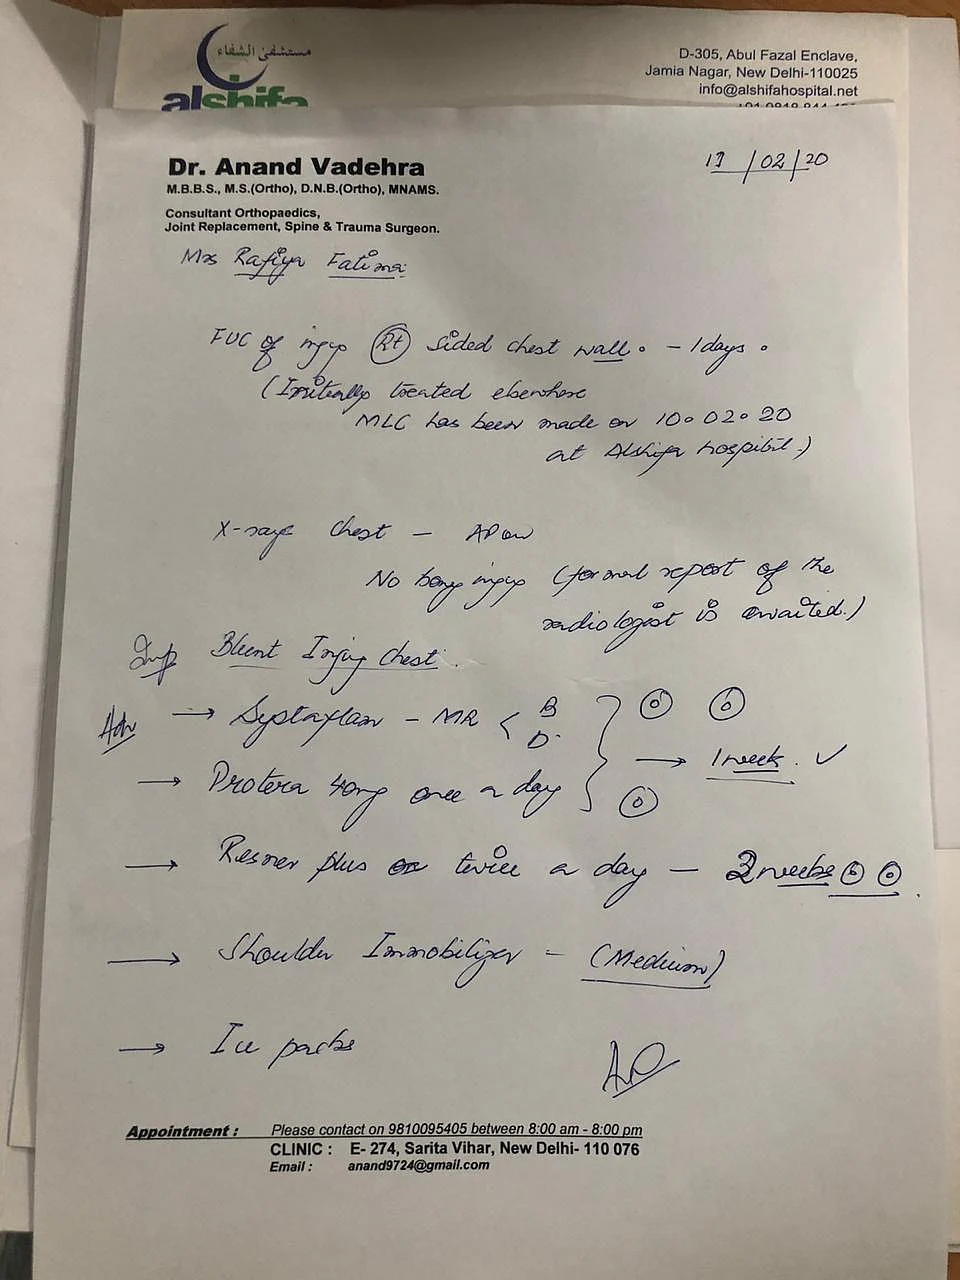 مستشفى الشفاء
alshifa
D-305, Abul Fazal Enclave,
Jamia Nagar, New Delhi-110025
info@alshifahospital.net
Dr. Anand Vadehra
M.B.B.S., M.S.(Ortho), D.N.B.(Ortho), MNAMS.
/02/20
Consultant Orthopaedics,
Joint Replacement, Spine & Trauma Surgeon.
Mrs Rafiya Fatima
FUC of injury Rt sided chest wall. - 1 days.
(Initially treated elsewhere
MLC has been made on 10.02.20
at Alshifa hospital.)
X-rays Chest -
No bony injury (formal report of the
radiologist is awaited.)
Imp Blunt Injury Chest.
Adv → - MR < B D.
→ 1 week. ✓
→ Protera 40mg once a day
→ Resner plus twice a day - 2 weeks
→ Shoulder Immobilizer - (Medium)
→ Ice packs
Appointment : Please contact on 9810095405 between 8:00 am - 8:00 pm
CLINIC : E- 274, Sarita Vihar, New Delhi- 110 076
Email : anand9724@gmail.com